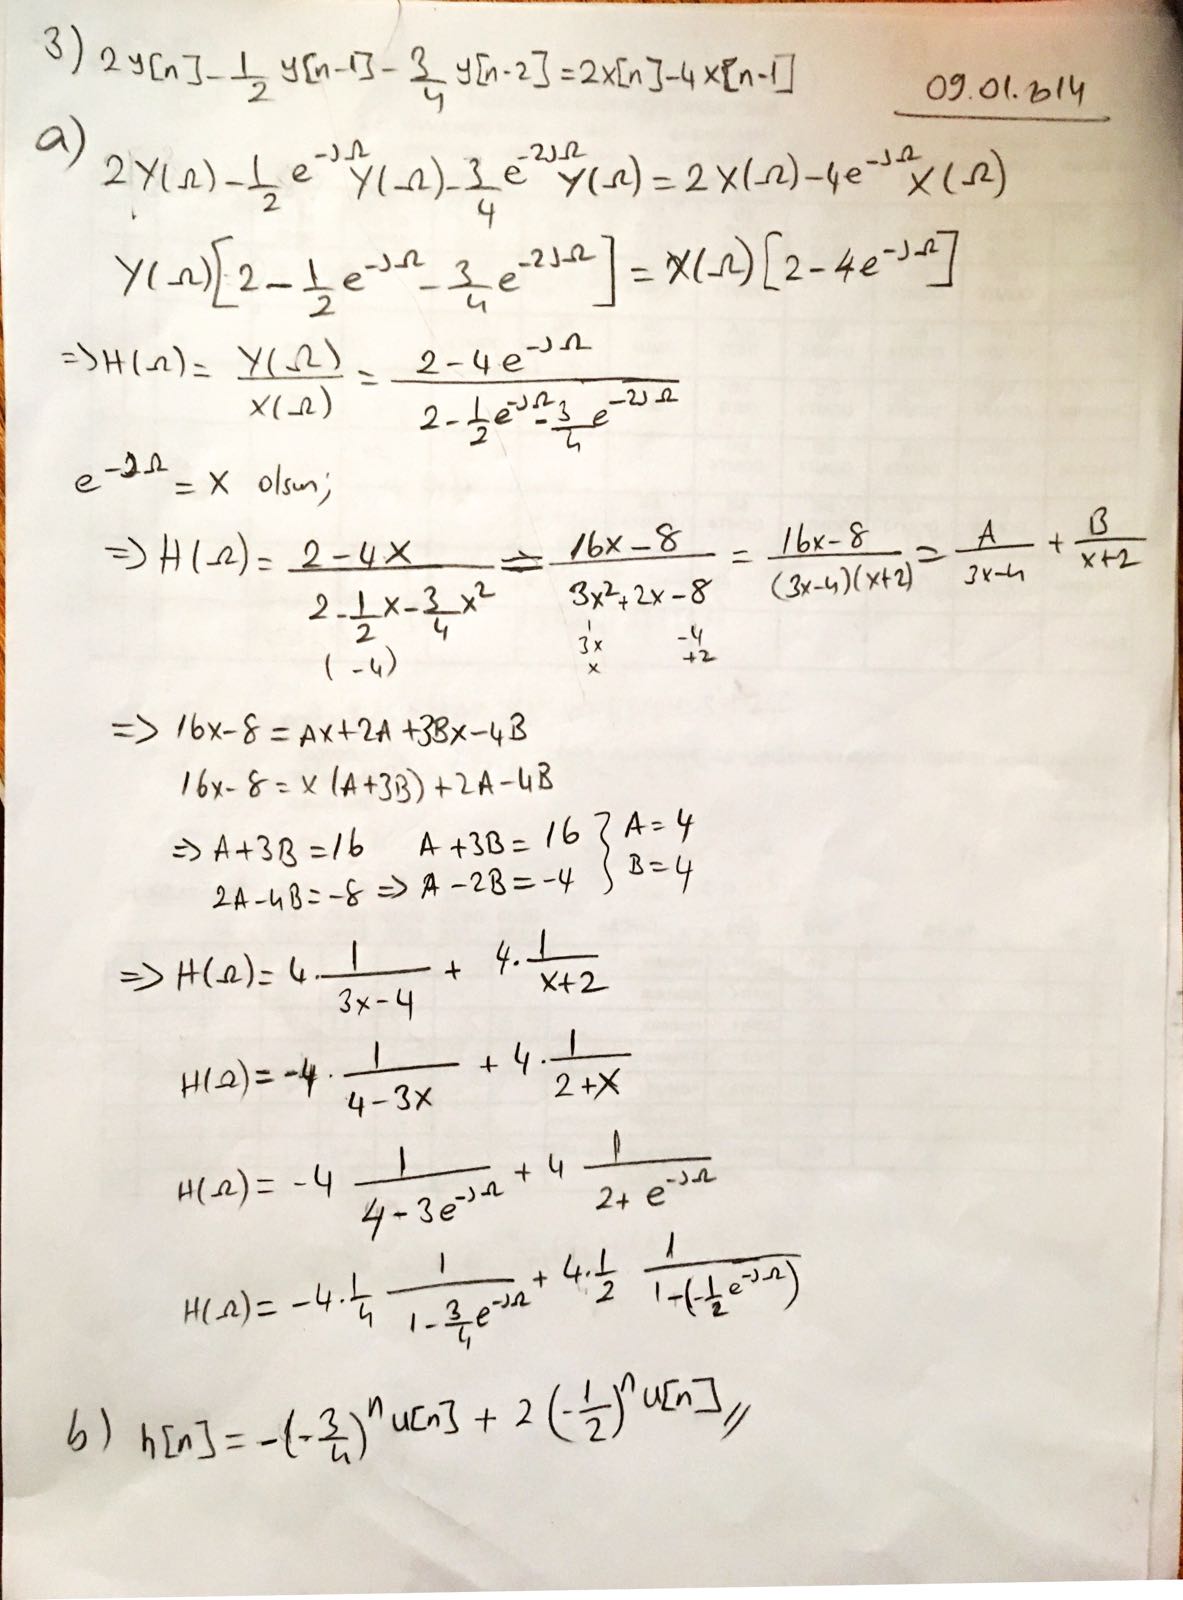 3) 2y[n] - 1/2 y[n-1] - 3/4 y[n-2] = 2x[n] - 4x[n-1]
09.01.2014
a) 2Y(Ω) - 1/2 e^{-JΩ} Y(Ω) - 3/4 e^{-2JΩ} Y(Ω) = 2X(Ω) - 4e^{-JΩ} X(Ω)
Y(Ω)[2 - 1/2 e^{-JΩ} - 3/4 e^{-2JΩ}] = X(Ω)[2 - 4e^{-JΩ}]
=> H(Ω) = Y(Ω)/X(Ω) = (2 - 4e^{-JΩ})/(2 - 1/2 e^{-JΩ} - 3/4 e^{-2JΩ})
e^{-JΩ} = x olsun;
=> H(Ω) = (2 - 4x)/(2 - 1/2 x - 3/4 x²) = (16x - 8)/(3x² + 2x - 8) = (16x - 8)/((3x-4)(x+2)) = A/(3x-4) + B/(x+2)
3x -4
(-4) x +2
=> 16x - 8 = Ax + 2A + 3Bx - 4B
16x - 8 = x(A+3B) + 2A - 4B
=> A + 3B = 16 A + 3B = 16 } A = 4
2A - 4B = -8 => A - 2B = -4 } B = 4
=> H(Ω) = 4 · 1/(3x-4) + 4 · 1/(x+2)
H(Ω) = -4 · 1/(4-3x) + 4 · 1/(2+x)
H(Ω) = -4 1/(4 - 3e^{-JΩ}) + 4 1/(2 + e^{-JΩ})
H(Ω) = -4 · 1/4 1/(1 - 3/4 e^{-JΩ}) + 4 · 1/2 1/(1 - (-1/2 e^{-JΩ}))
b) h[n] = -(-3/4)^n u[n] + 2(-1/2)^n u[n] //